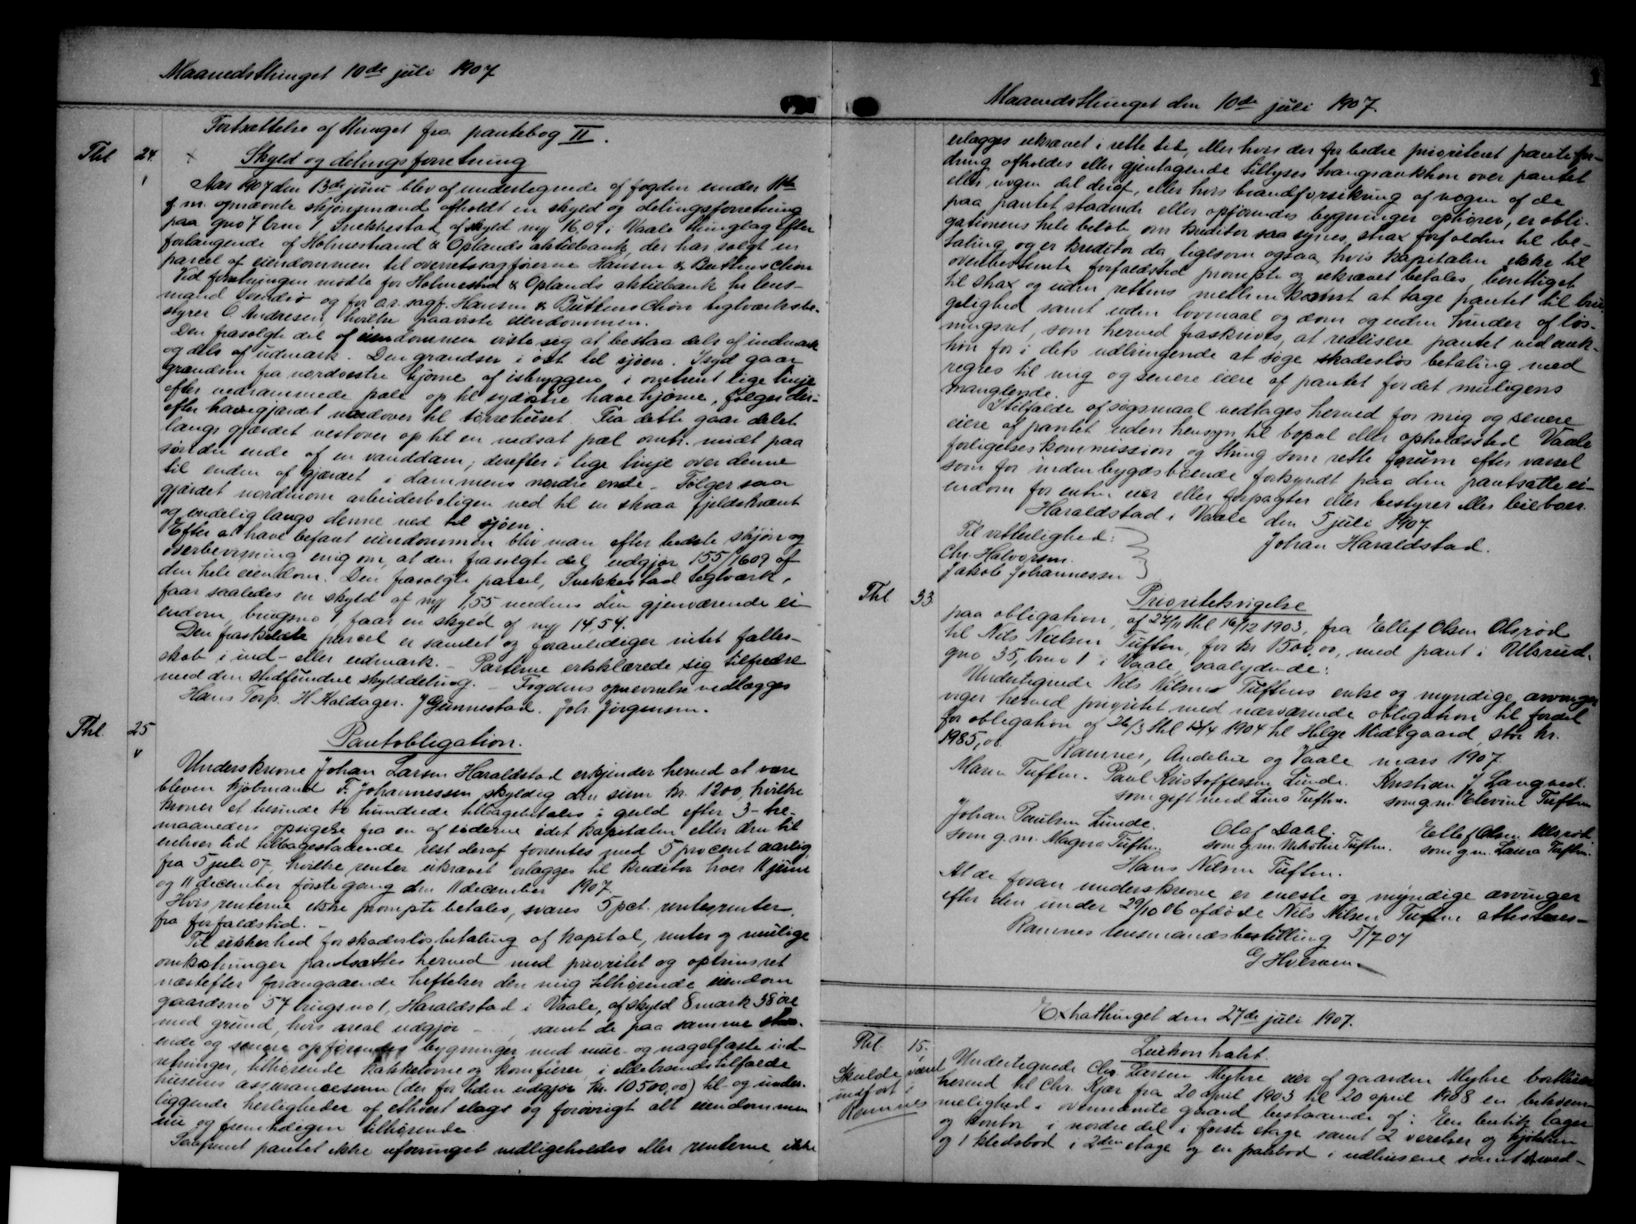 Maanedsthinget 10de juli 1907
Fortsættelse af thinget fra pantebog II.
Thl 24. Skyld og delingsforretning
Aar 1907 den 13de juni blev af undertegnede af fogden under 11te
s.m. opnævnte skjønsmænd afholdt en skyld og delingsforretning
paa gno 7 brno 1 Snekkestad af skyld my 16,09 i Vaale thinglag efter
forlangende af Holmestrand & Oplands aktiebank der har solgt en
parcel af eiendommen til overretssagførerne Hansen & Buttenschøn
Ved forretningen mødte for Holmestrand & Oplands aktiebank hr lens-
mand og for o.r. sagf. Hansen & Buttenschøn teglværksbe-
styrer O Andresen, hvilke paaviste eiendommen.
Den frasolgte del af eiendommen viste seg at bestaa dels af indmark
og dels af udmark. Den grændser i øst til sjøen. I syd gaar
grændsen fra nordvestre hjørne af isbryggen i omtrent lige linje
efter nedrammede pæle op til sydøstre havehjørne, følger der-
efter havegjærdet nordover til tørrehuset. Fra dette gaar delet
langs gjærdet vestover op til en nedsat pæl omtr. midt paa
søndre ende af en vanddam; derefter i lige linje over denne
til enden af gjærdet i dammens nordre ende. Følger saa
gjærdet nordenom arbeiderboligen ned til en skraa fjeldskrænt
og endelig langs denne ned til sjøen.
Efter at have befaret eiendommen blev man efter bedste skjøn og
overbevisning enig om, at den frasolgte del udgjør 155/1609 af
den hele eiendom. Den frasolgte parcel, Snekkestad Teglværk,
faar saaledes en skyld af my 1,55 medens den gjenværende ei-
endom, brugsno 1, faar en skyld af my 14.54.
Den fraskilte parcel er samlet og foranlediger intet fælles-
skab i ind- eller udmark. – Parterne erklærede sig tilfredse
med den stedfundne skylddeling. – Fogdens opnævnelse vedlægges
Hans Torp. H Haldager. J Gunnestad. Joh Jørgensen.
Thl 25
Pantobligation.
Underskrevne Johan Larsen Haraldstad erkjender herved at være
bleven kjøbmand F. Johannessen skyldig den sum kr. 1200, hvilke
kroner et tusinde to hundrede tilbagebetales i guld efter 3-tre
maaneders opsigelse fra en af siderne idet kapitalen eller den til
enhver tid tilbagestaaende rest deraf forrentes med 5 procent aarlig
fra 5 juli 07, hvilke renter ukrævet erlægges til kreditor hver 11 juni
og 11 december første gang den 11 december 1907.
Hvis renterne ikke prompte betales, svares 5 pct. rentesrenter
fra forfaldstid. –
Til sikkerhed for skadesløs betaling af kapital, renter og mulige
omkostninger pantsættes herved med prioritet og optrinsret
næstefter foregaaende heftelser den mig tilhørende eiendom
gaardsno 57 brugsno 1, Haraldstad i Vaale, af skyld 8 mark 38 øre
med grund, hvis areal udgjør – samt de paa samme staa-
ende og senere opførendes bygninger med mur- og nagelfaste ind-
retninger, tilhørende kakkelovne og komfurer, i ildebrandstilfælde
husenes assurancesum (der for tiden udgjør kr. 10500,00) til og under-
liggende herligheder af ethvert slags og forøvrigt alt eiendommen
nu og fremtidigen tilhørende.
Saafremt pantet ikke uforringet vedligeholdes eller renterne ikke
Maanedsthinget den 10de juli 1907.
1
erlægges ukrævet i rette tid, eller hvis der for bedre prioriteret pantefor-
dring afholdes eller gjentagende tillyses tvangsauktion over pantet
eller nogen del deraf, eller hvis brandforsikring af nogen af de
paa pantet staaende eller opførendes bygninger ophører, er obli-
gationens hele beløb om kreditor saa synes strax forfalden til be-
taling og er kreditor da ligesom ogsaa hvis kapitalen ikke til
ovenbestemte forfaldstid prompte og ukrævet betales, berettiget
til strax og uden rettens mellemkomst at tage pantet til brug
gelighed samt uden lovmaal og dom og uden hinder af løs-
ningsret, som herved fraskrives, at realisere pantet ved auk-
tion for i dets udbringende at søge skadesløs betaling med
regres til mig og senere eiere af pantet for det muligens
manglende.
I tilfælde af søgsmaal vedtages herved for mig og senere
eiere af pantet uden hensyn til bopæl eller opholdssted Vaale
forligelseskommission og thing som rette forum efter varsel
som for indenbygdsboende forkyndt paa den pantsatte ei-
endom for enten eier eller forpagter eller bestyrer eller beboer.
Haraldstad i Vaale den 5 juli 1907
Til vitterlighed: Johan Haraldstad.
Chr. Halvorsen.
Jakob Johannessen
Thl 33 Prioritetsvigelse
paa obligation, af 24/11 thl 16/12 1903, fra Ellef Olsen Olsrød
til Nils Nielsen Tuften, for kr 1500,00, med pant i Ulsrud.
gno 35, brno 1 i Vaale, saalydende:
Undertegnede Nils Nilsens Tuftens enke og myndige arvinger
viger herved prioritet med nærværende obligation til fordel
for obligation af 26/3 thl 15/4 1904 til Helge Midtgaard, stor kr.
1985,00.
Ramnes, Andebu og Vaale mars 1907
Maren Tuften. Paul Kristoffersen Lunde. Kristian J Langved.
som gift med Lina Tuften. som g.m. Elevine Tuften
Johan Paulsen Lunde. Olaf Dahl. Ellef Olsen Ulsrød
som g.m. Magna Tuften. som g.m. Nikoline Tuften. som g.m. Laura Tuften.
Hans Nilsen Tuften.
At de foran underskrevne er eneste og myndige arvinger
efter den under 29/10 06 afdøde Nils Nilsen Tuften attesteres –
Ramnes lensmandsbestilling 5/7 07
G Hversen
Extrathinget den 27de juli 1907.
Thl. 15. Leiekontrakt.
Skulde været
indført i
Ramnes
Undertegnede Chr Larsen Myhre eier af gaarden Myhre bortleier
herved til Chr. Kjær fra 20 april 1903 til 20 april 1908 en bekvem-
melighed i ovennævnte gaard bestaaende af: En butik lager
og kontor i nordre del i første etage samt 2 værelser og kjøkken
og 1 klædsbod i 2den etage og en paabod i udhusene samt ved-